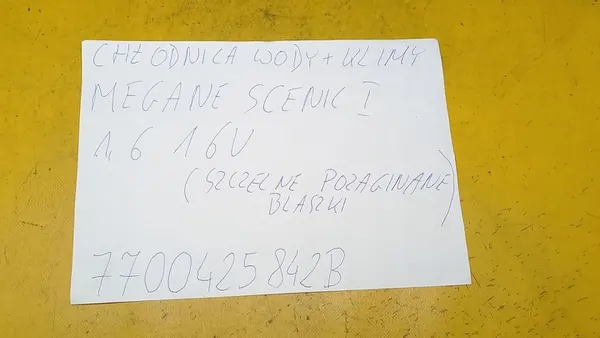 CHŁODNICA WODY + KLIMY
MEGANE SCENIC I
1,6 16V
(SZCZELNE POZAGINANE
BLASZKI)
7700425842B